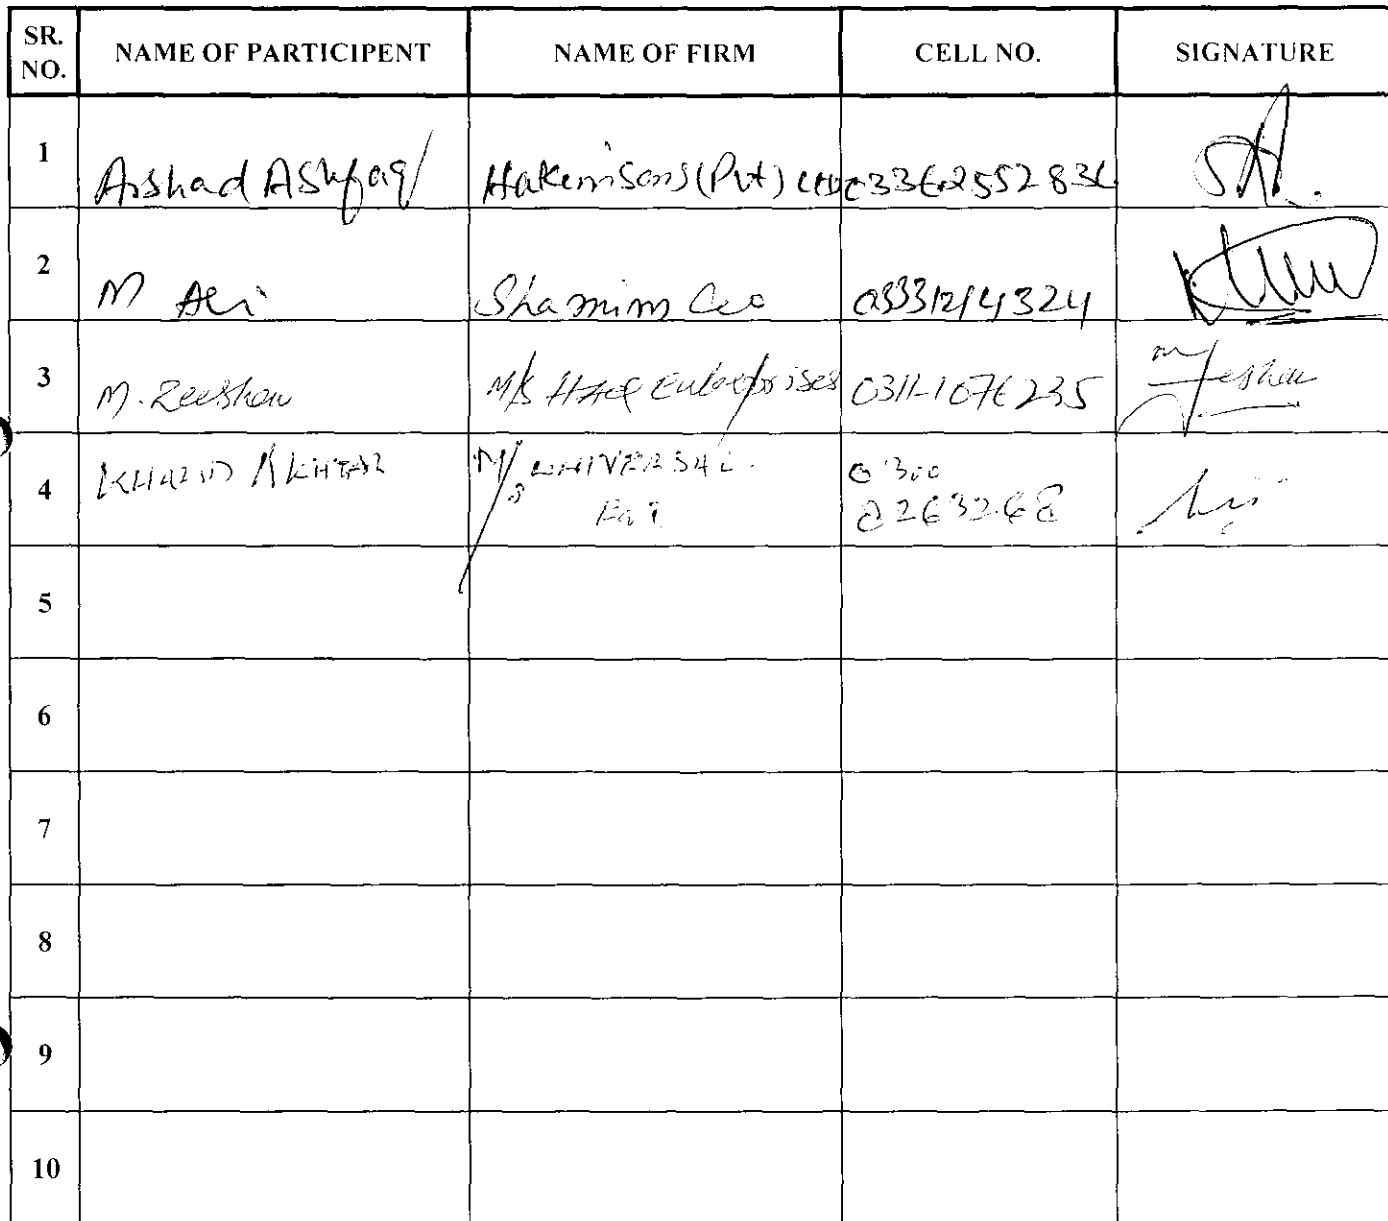 SR. NO. NAME OF PARTICIPENT NAME OF FIRM CELL NO. SIGNATURE
1 Arshad Ashfaq Hakimsons (Pvt) Ltd
2 M Ali Shamim Ceo 03331214324
3 M. Zeeshan M/s HAQ Enterprises 0311-1076235
4 KHALID AKHTAR M/s UNIVERSAL 0300
8263268
5
6
7
8
9
10